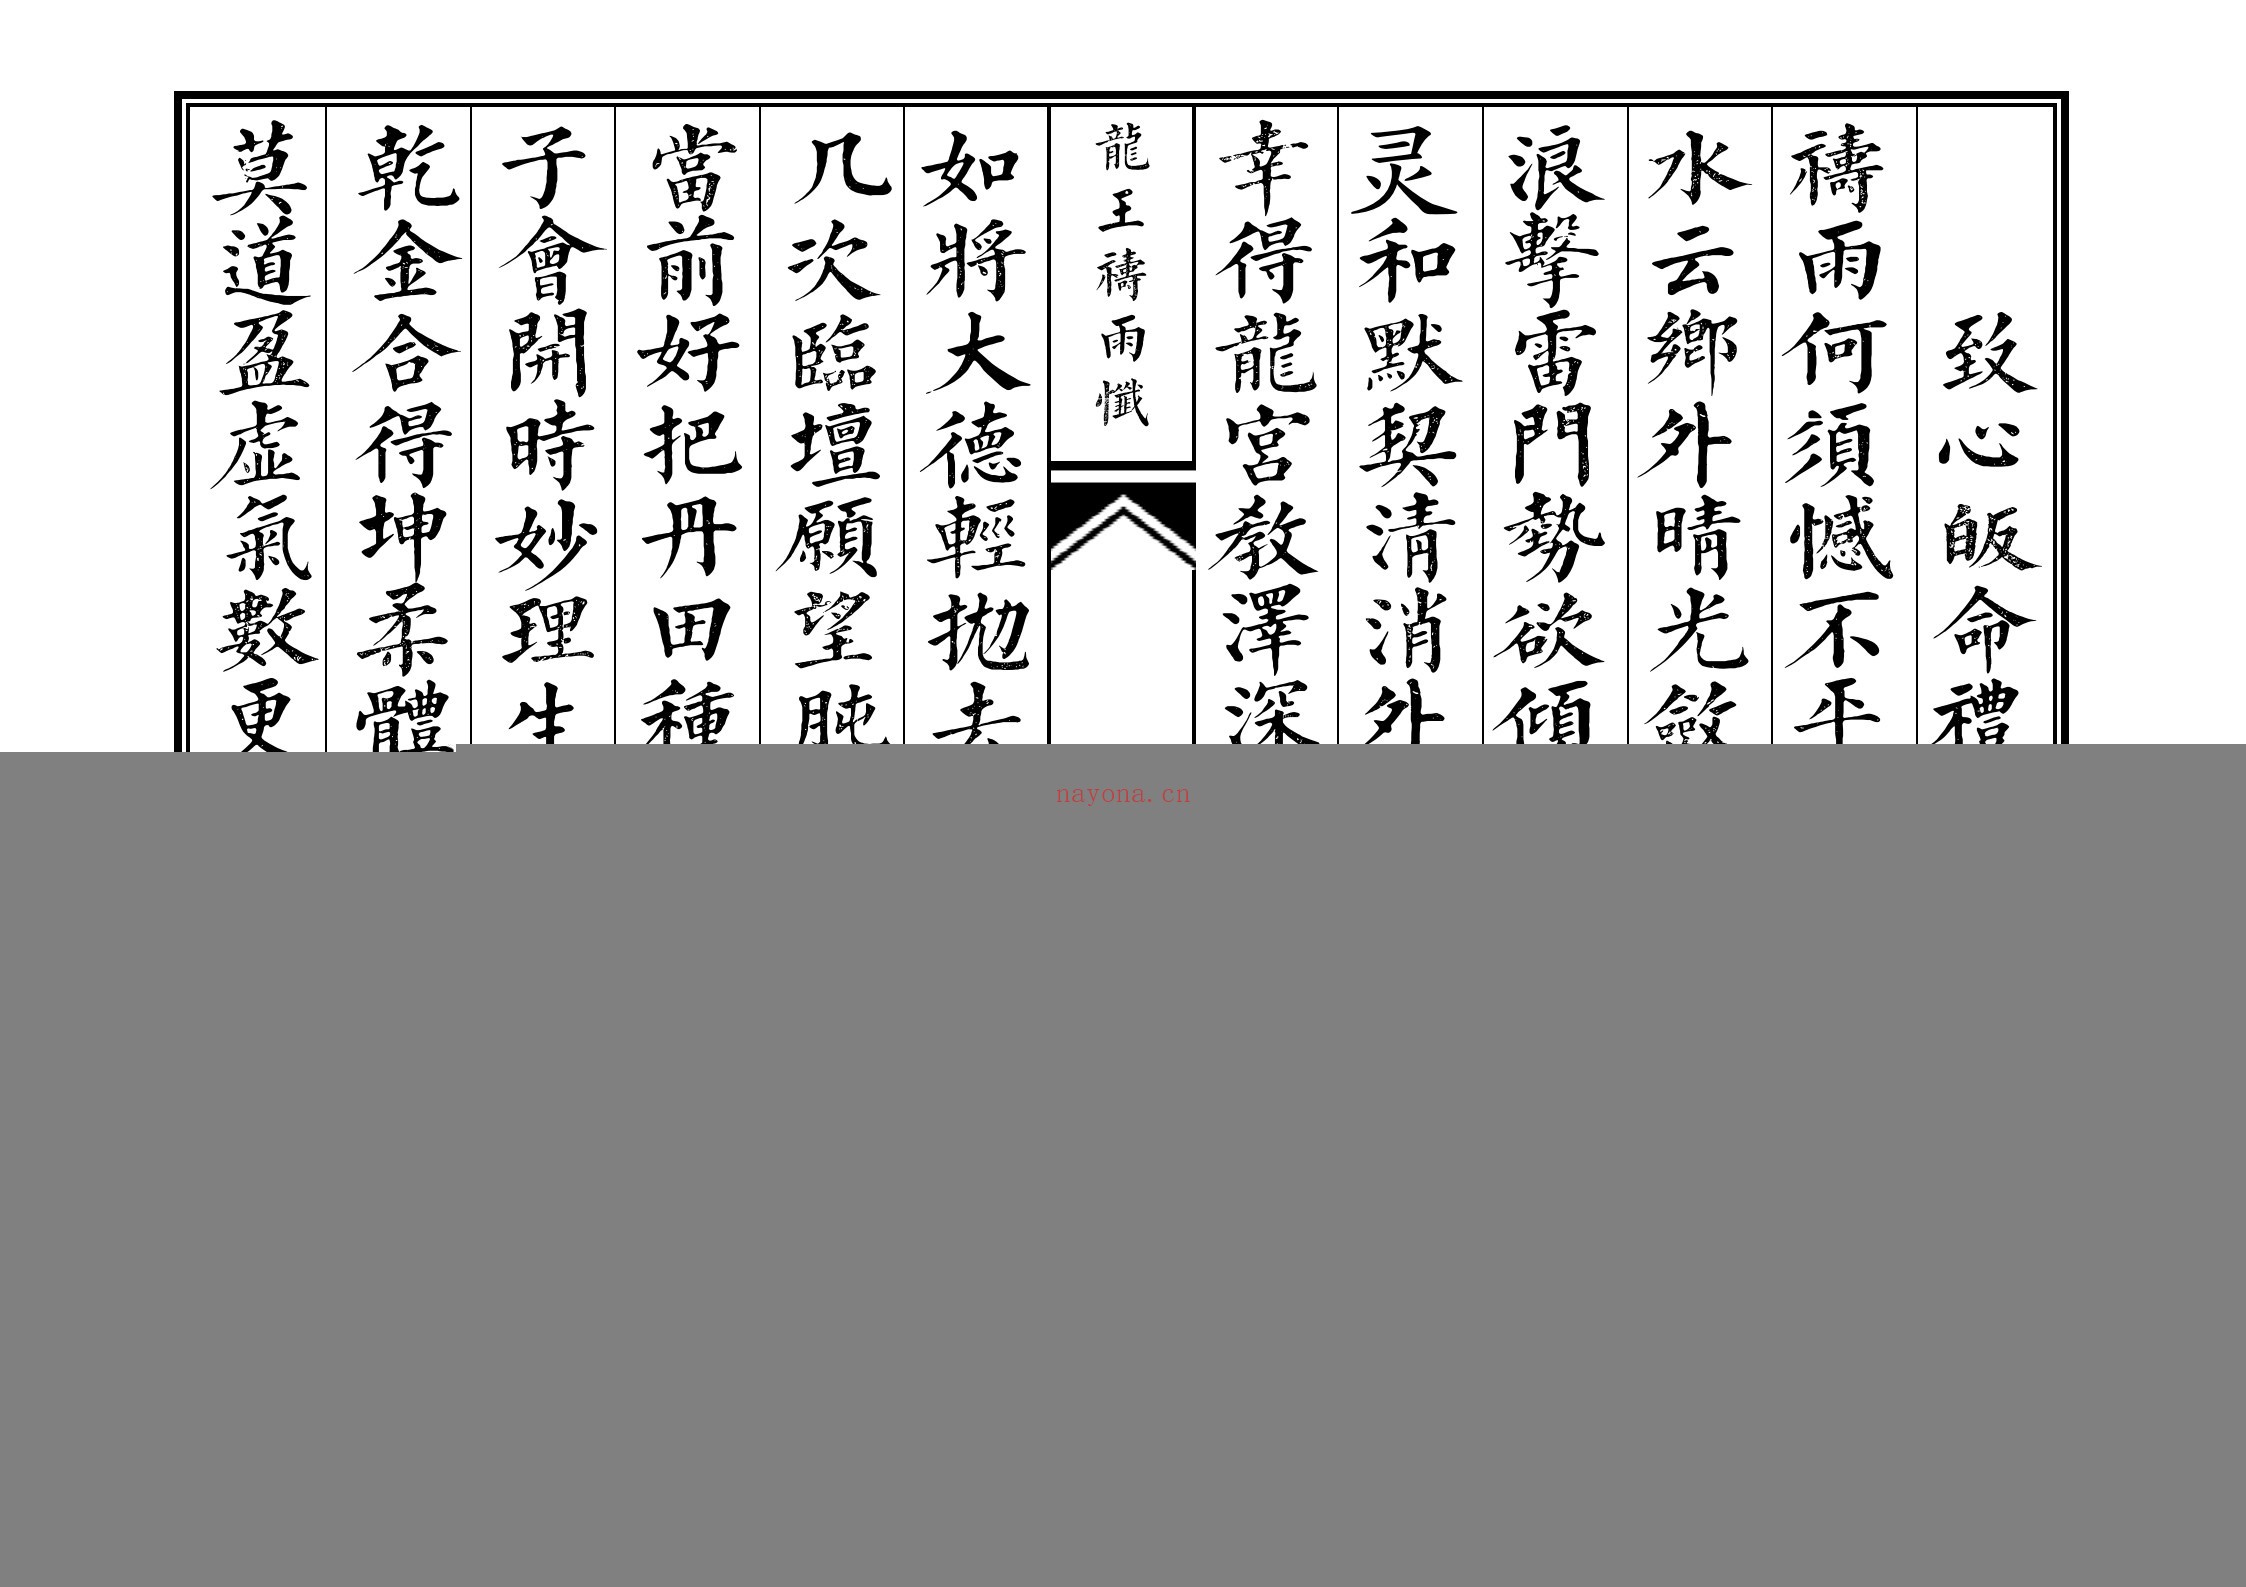 致心皈命禮
禱雨何須憾不平
水云鄉外晴光斂
浪擊雷門勢欲傾
灵和默契清消外
幸得龍宮教澤深
龍王禱雨懺
如將大德輕拋去
几次臨壇願望肫
當前好把丹田種
子會開時妙理生
乾金合得坤柔體
莫道盈虛氣數更
nayona.cn